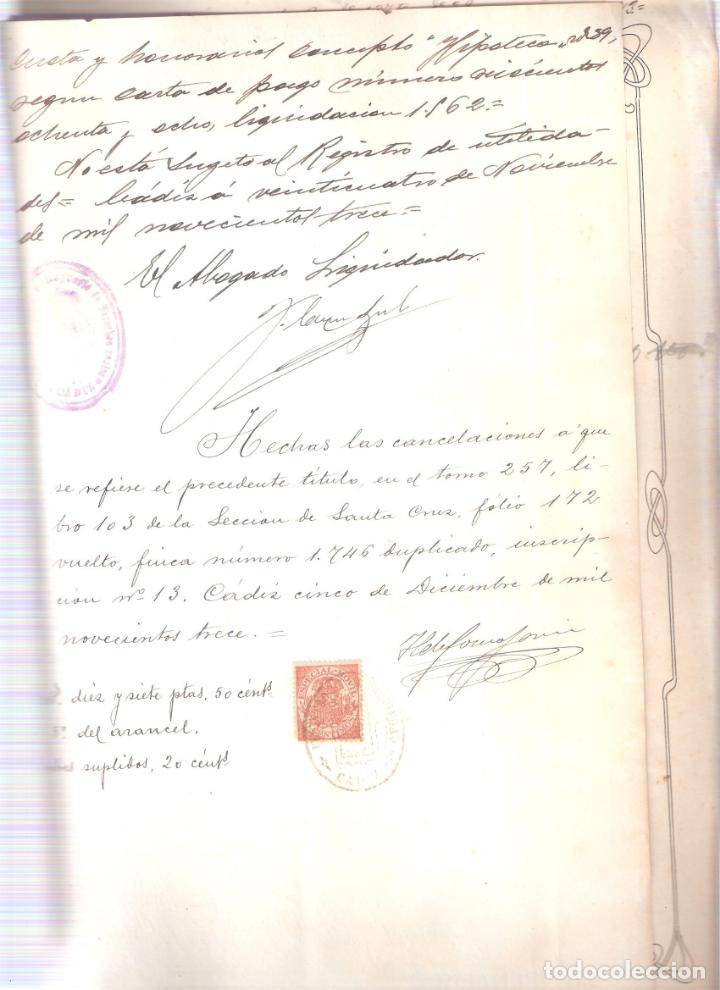 y honorarios concepto "Hipoteca" nº 39,
segun carta de pago número seiscientos
ochenta y ocho, liquidacion 1.562.=
No está sugeto al Registro de utilida-
des= Cádiz á veinticuatro de Noviembre
de mil novecientos trece=
El Abogado Liquidador.
Hechas las cancelaciones á que
se refiere el precedente título, en el tomo 257, li-
bro 103 de la Seccion de Santa Cruz, fólio 172
vuelto, finca número 1.746 duplicado, inscrip-
ción nº 13. Cádiz cinco de Diciembre de mil
novecientos trece. =
diez y siete ptas. 50 cénts
del arancel.
suplidos, 20 cénts
ESPECIAL MOVIL
CADIZ
todocoleccion